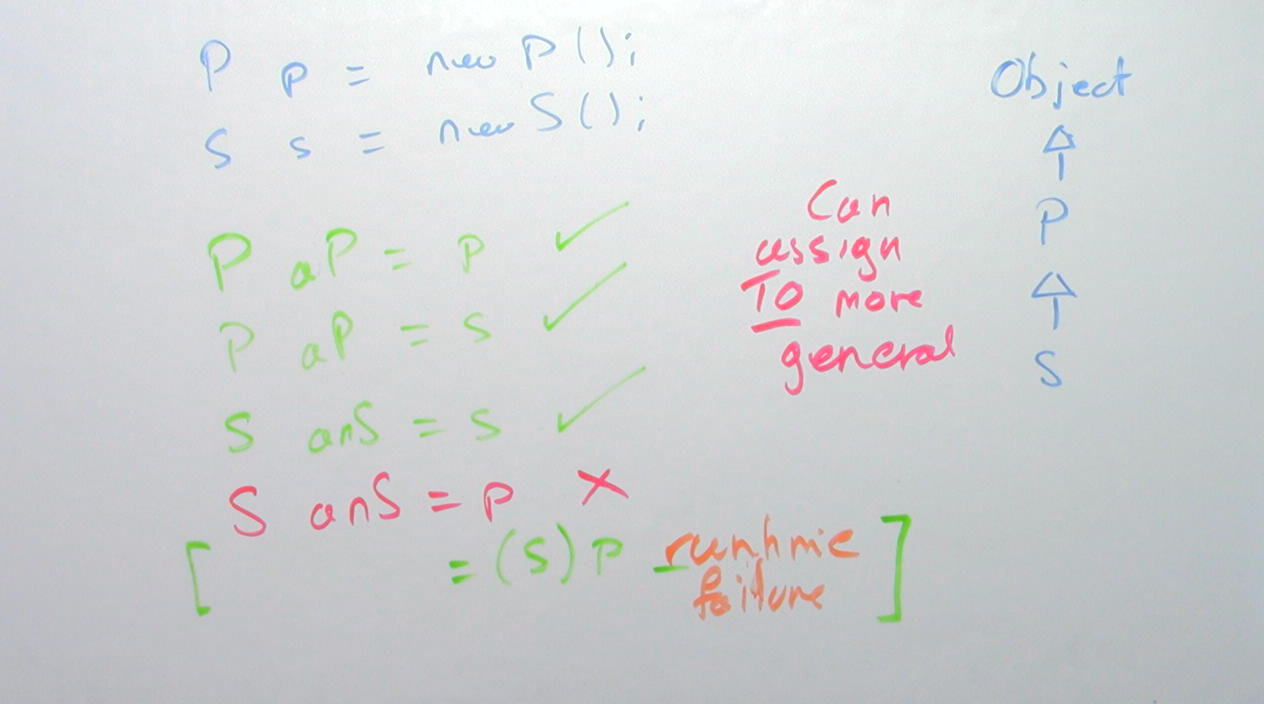 P p = new P();
S s = new S();
P aP = p ✓
P aP = s ✓
S anS = s ✓
S anS = p ✗
[ = (S) p runtime
failure ]
Can
assign
TO more
general
Object
P
S